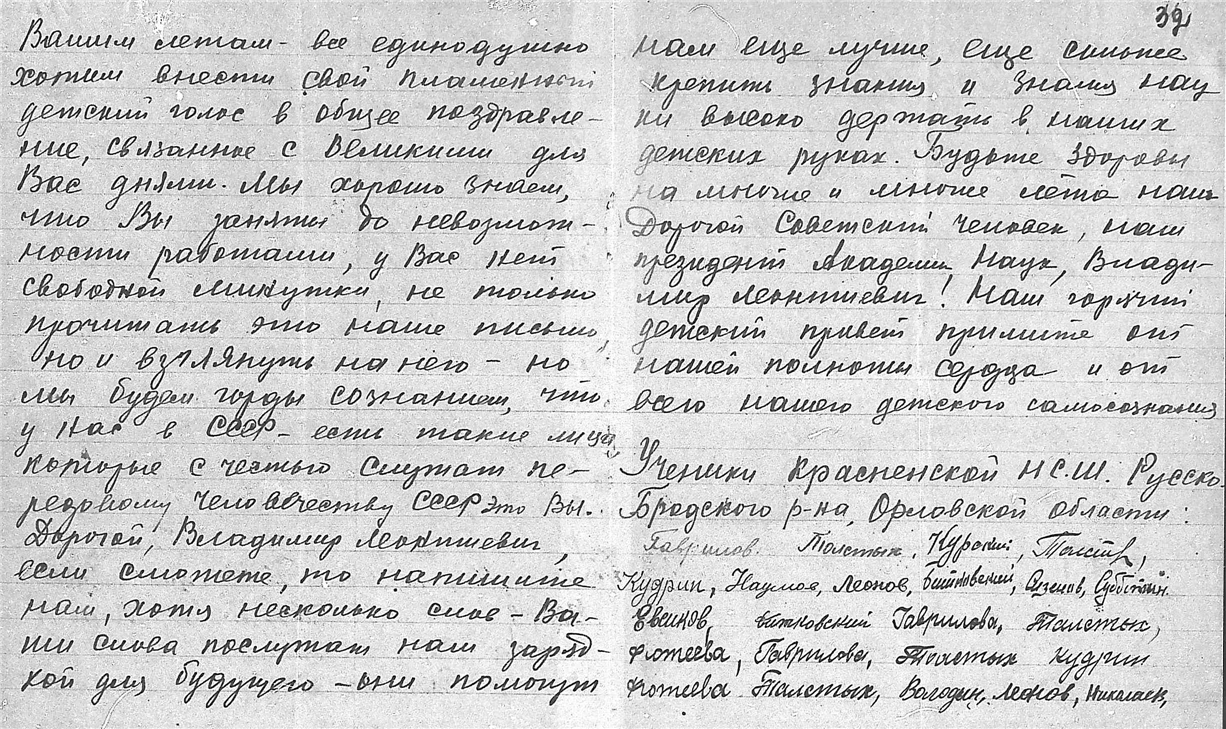 Вашим летам - все единодушно
хотим внести свой пламенный
детский голос в общее поздравле-
ние, связанное с Великими для
Вас днями. Мы хорошо знаем,
что Вы заняты до невозмож-
ности работами, у Вас нет
свободной минутки, не только
прочитать это наше письмо
но и взглянуть на него - но
мы будем горды сознанием, что
у нас в СССР - есть такие лица,
которые с честью служат пе-
редовому человечеству СССР это Вы.
Дорогой, Владимир Леонтиевич,
если сможете, то напишите
нам, хотя несколько слов - Ва-
ши слова послужат нам заряд-
кой для будущего - они помогут
39
нам еще лучше, еще сильнее
крепить знания и знамя нау
ки высоко держать в наших
детских руках. Будьте здоровы
на многие и многие лета наш
Дорогой Советский человек, наш
президент Академии Наук, Влади-
мир Леонтиевич! Наш горячий
детский привет примите от
нашей полноты сердца и от
всего нашего детского самосознания
Ученики Красненской Н.С.Ш. Русско-
Бродского р-на, Орловской области:
Гаврилов. Толстых, Курский,
Кудрин, Наумов, Леонов, Субботин.
Евсиков, Витковский Гаврилова, Толстых,
Фотеева, Гаврилова, Толстых Кудрин
Фотеева Толстых, Володин, Леонов, Николаев,